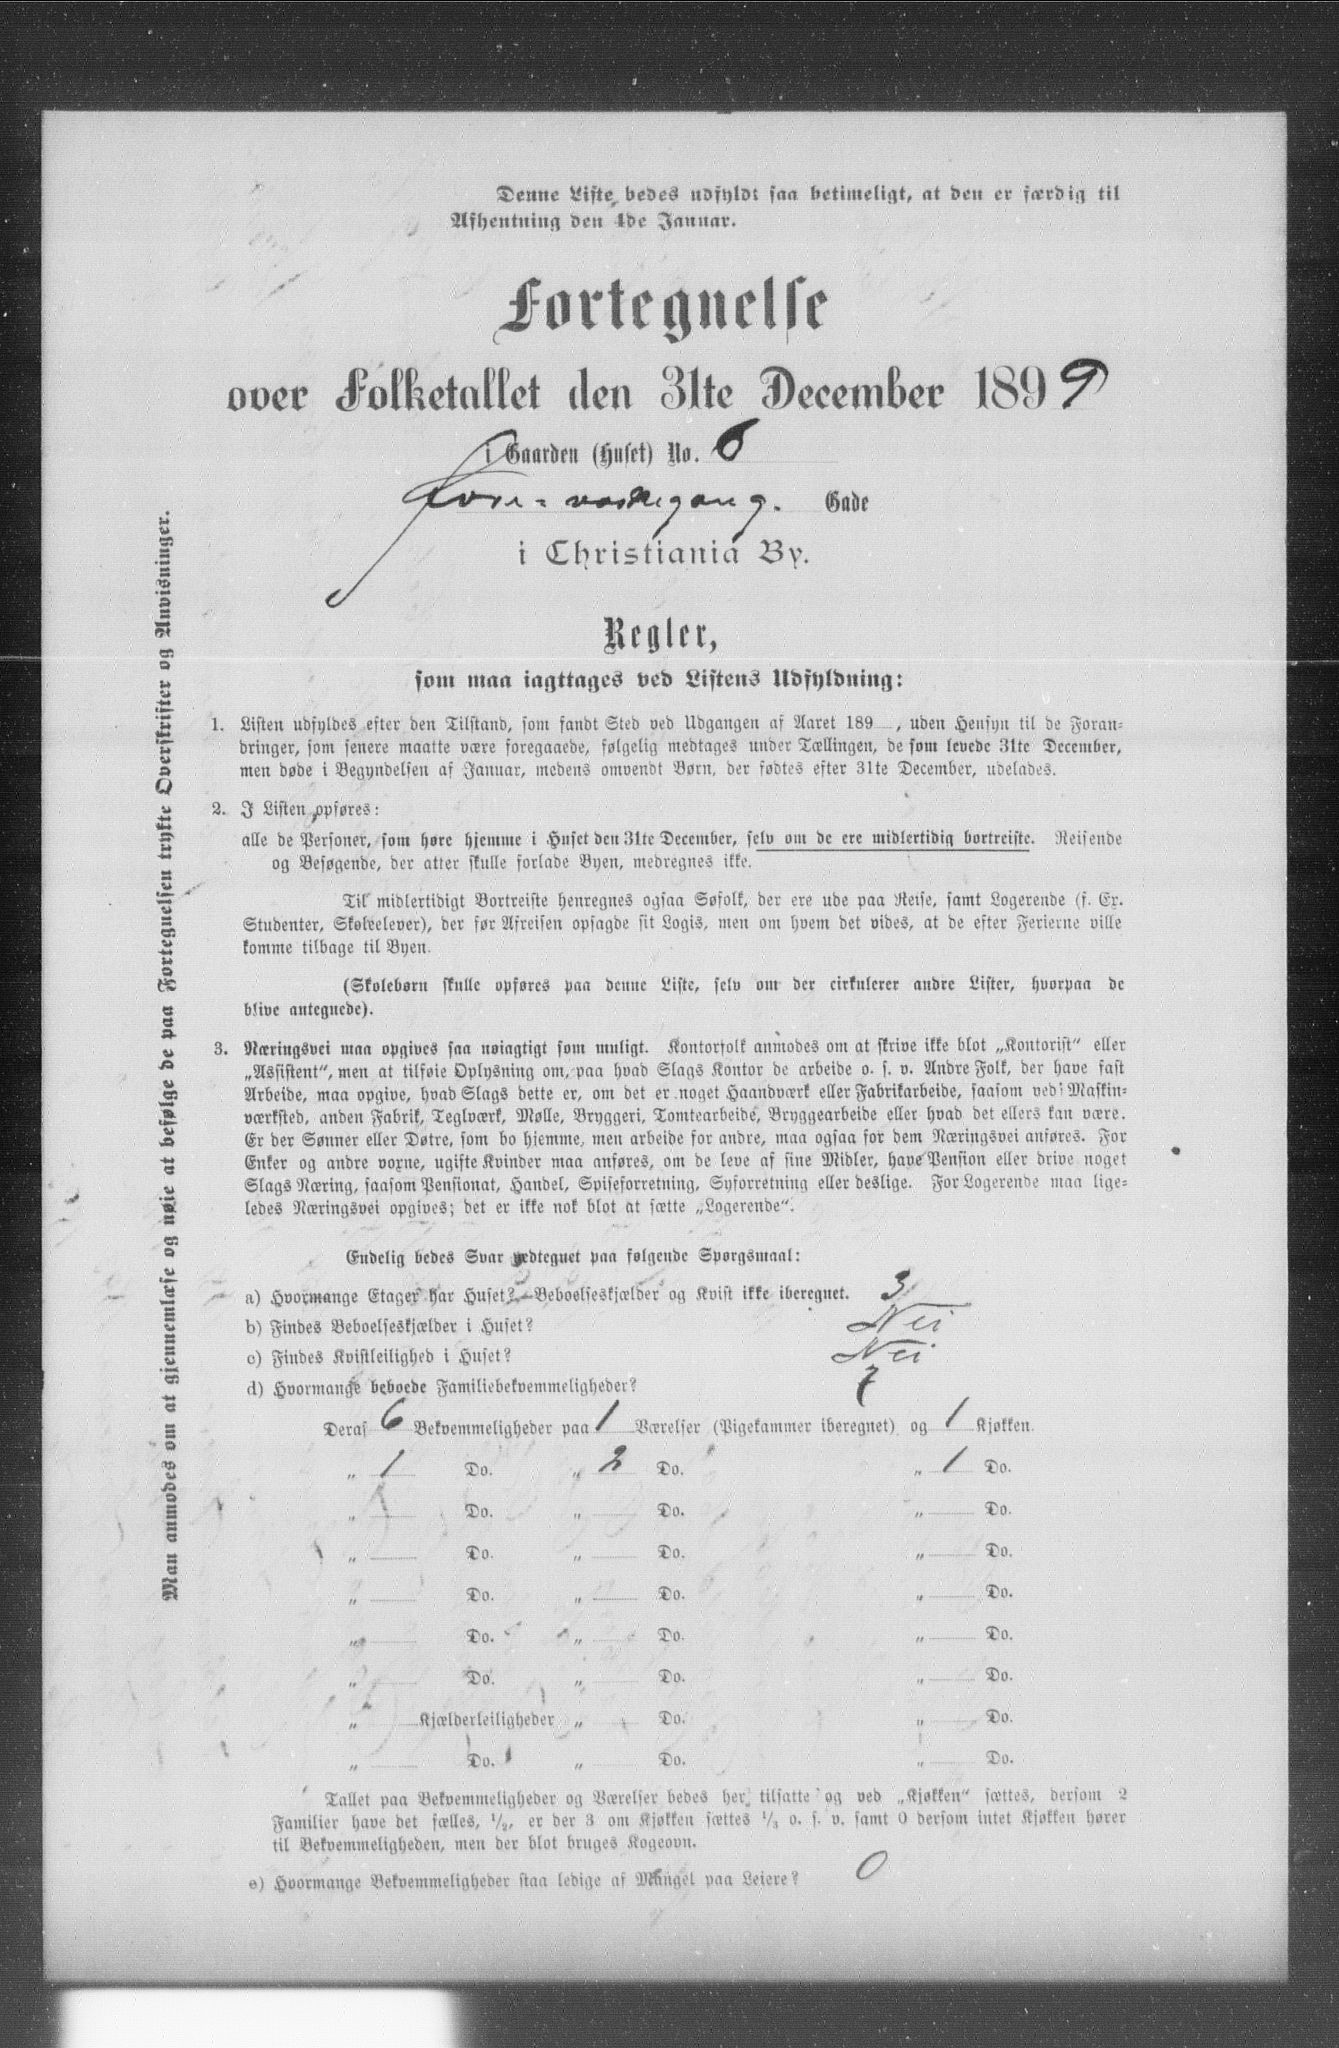 Denne Liste bedes udfyldt saa betimeligt, at den er færdig til
Afhentning den 4de Januar.
Fortegnelse
over Folketallet den 31te December 1899
i Gaarden (Huset) No. 6
Gade
i Christiania By.
Regler,
som maa iagttages ved Listens Udfyldning:
1. Listen udfyldes efter den Tilstand, som fandt Sted ved Udgangen af Aaret 189 , uden Hensyn til de Foran-
dringer, som senere maatte være foregaaede, følgelig medtages under Tællingen, de som levede 31te December,
men døde i Begyndelsen af Januar, medens omvendt Børn, der fødtes efter 31te December, udelades.
2. I Listen opføres:
alle de Personer, som høre hjemme i Huset den 31te December, selv om de ere midlertidig bortreiste. Reisende
og Besøgende, der atter skulle forlade Byen, medregnes ikke.
Til midlertidigt Bortreiste henregnes ogsaa Søfolk, der ere ude paa Reise, samt Logerende (f. Ex.
Studenter, Skoleelever), der før Afreisen opsagde sit Logis, men om hvem det vides, at de efter Ferierne ville
komme tilbage til Byen.
(Skolebørn skulle opføres paa denne Liste, selv om der cirkulerer andre Lister, hvorpaa de
blive antegnede).
3. Næringsvei maa opgives saa nøiagtigt som muligt. Kontorfolk anmodes om at skrive ikke blot „Kontorist“ eller
„Assistent“, men at tilføie Oplysning om, paa hvad Slags Kontor de arbeide o. s. v. Andre Folk, der have fast
Arbeide, maa opgive, hvad Slags dette er, om det er noget Haandværk eller Fabrikarbeide, saasom ved Maskin-
værksted, anden Fabrik, Teglværk, Mølle, Bryggeri, Tomtearbeide, Bryggearbeide eller hvad det ellers kan være.
Er der Sønner eller Døtre, som bo hjemme, men arbeide for andre, maa ogsaa for dem Næringsvei anføres. For
Enker og andre voxne, ugifte Kvinder maa anføres, om de leve af sine Midler, have Pension eller drive noget
Slags Næring, saasom Pensionat, Handel, Spiseforretning, Syforretning eller deslige. For Logerende maa lige-
ledes Næringsvei opgives; det er ikke nok blot at sætte „Logerende“.
Endelig bedes Svar vedtegnet paa følgende Spørgsmaal:
a) Hvormange Etager har Huset? Beboelseskjælder og Kvist ikke iberegnet. 3
b) Findes Beboelseskjælder i Huset? Nei
c) Findes Kvistleilighed i Huset? Nei
d) Hvormange beboede Familiebekvemmeligheder? 7
Deraf 6 Bekvemmeligheder paa 1 Værelser (Pigekammer iberegnet) og 1 Kjøkken.
„ 1 Do. „ 2 Do. „ 1 Do.
„ Do. „ Do. „ Do.
„ Do. „ Do. „ Do.
„ Do. „ Do. „ Do.
„ Do. „ Do. „ Do.
„ Do. „ Do. „ Do.
„ Kjælderleiligheder „ Do. „ Do.
„ Do. „ Do. „ Do.
Tallet paa Bekvemmeligheder og Værelser bedes her tilsatte og ved „Kjøkken“ sættes, dersom 2
Familier have det fælles, 1/2, er der 3 om Kjøkken sættes 1/3 o. s. v. samt 0 dersom intet Kjøkken hører
til Bekvemmeligheden, men der blot bruges Kogeovn.
e) Hvormange Bekvemmeligheder staa ledige af Mangel paa Leiere? 0
Man anmodes om at gjennemlæse og nøie at befølge de paa Fortegnelsen trykte Overskrifter og Anvisninger.